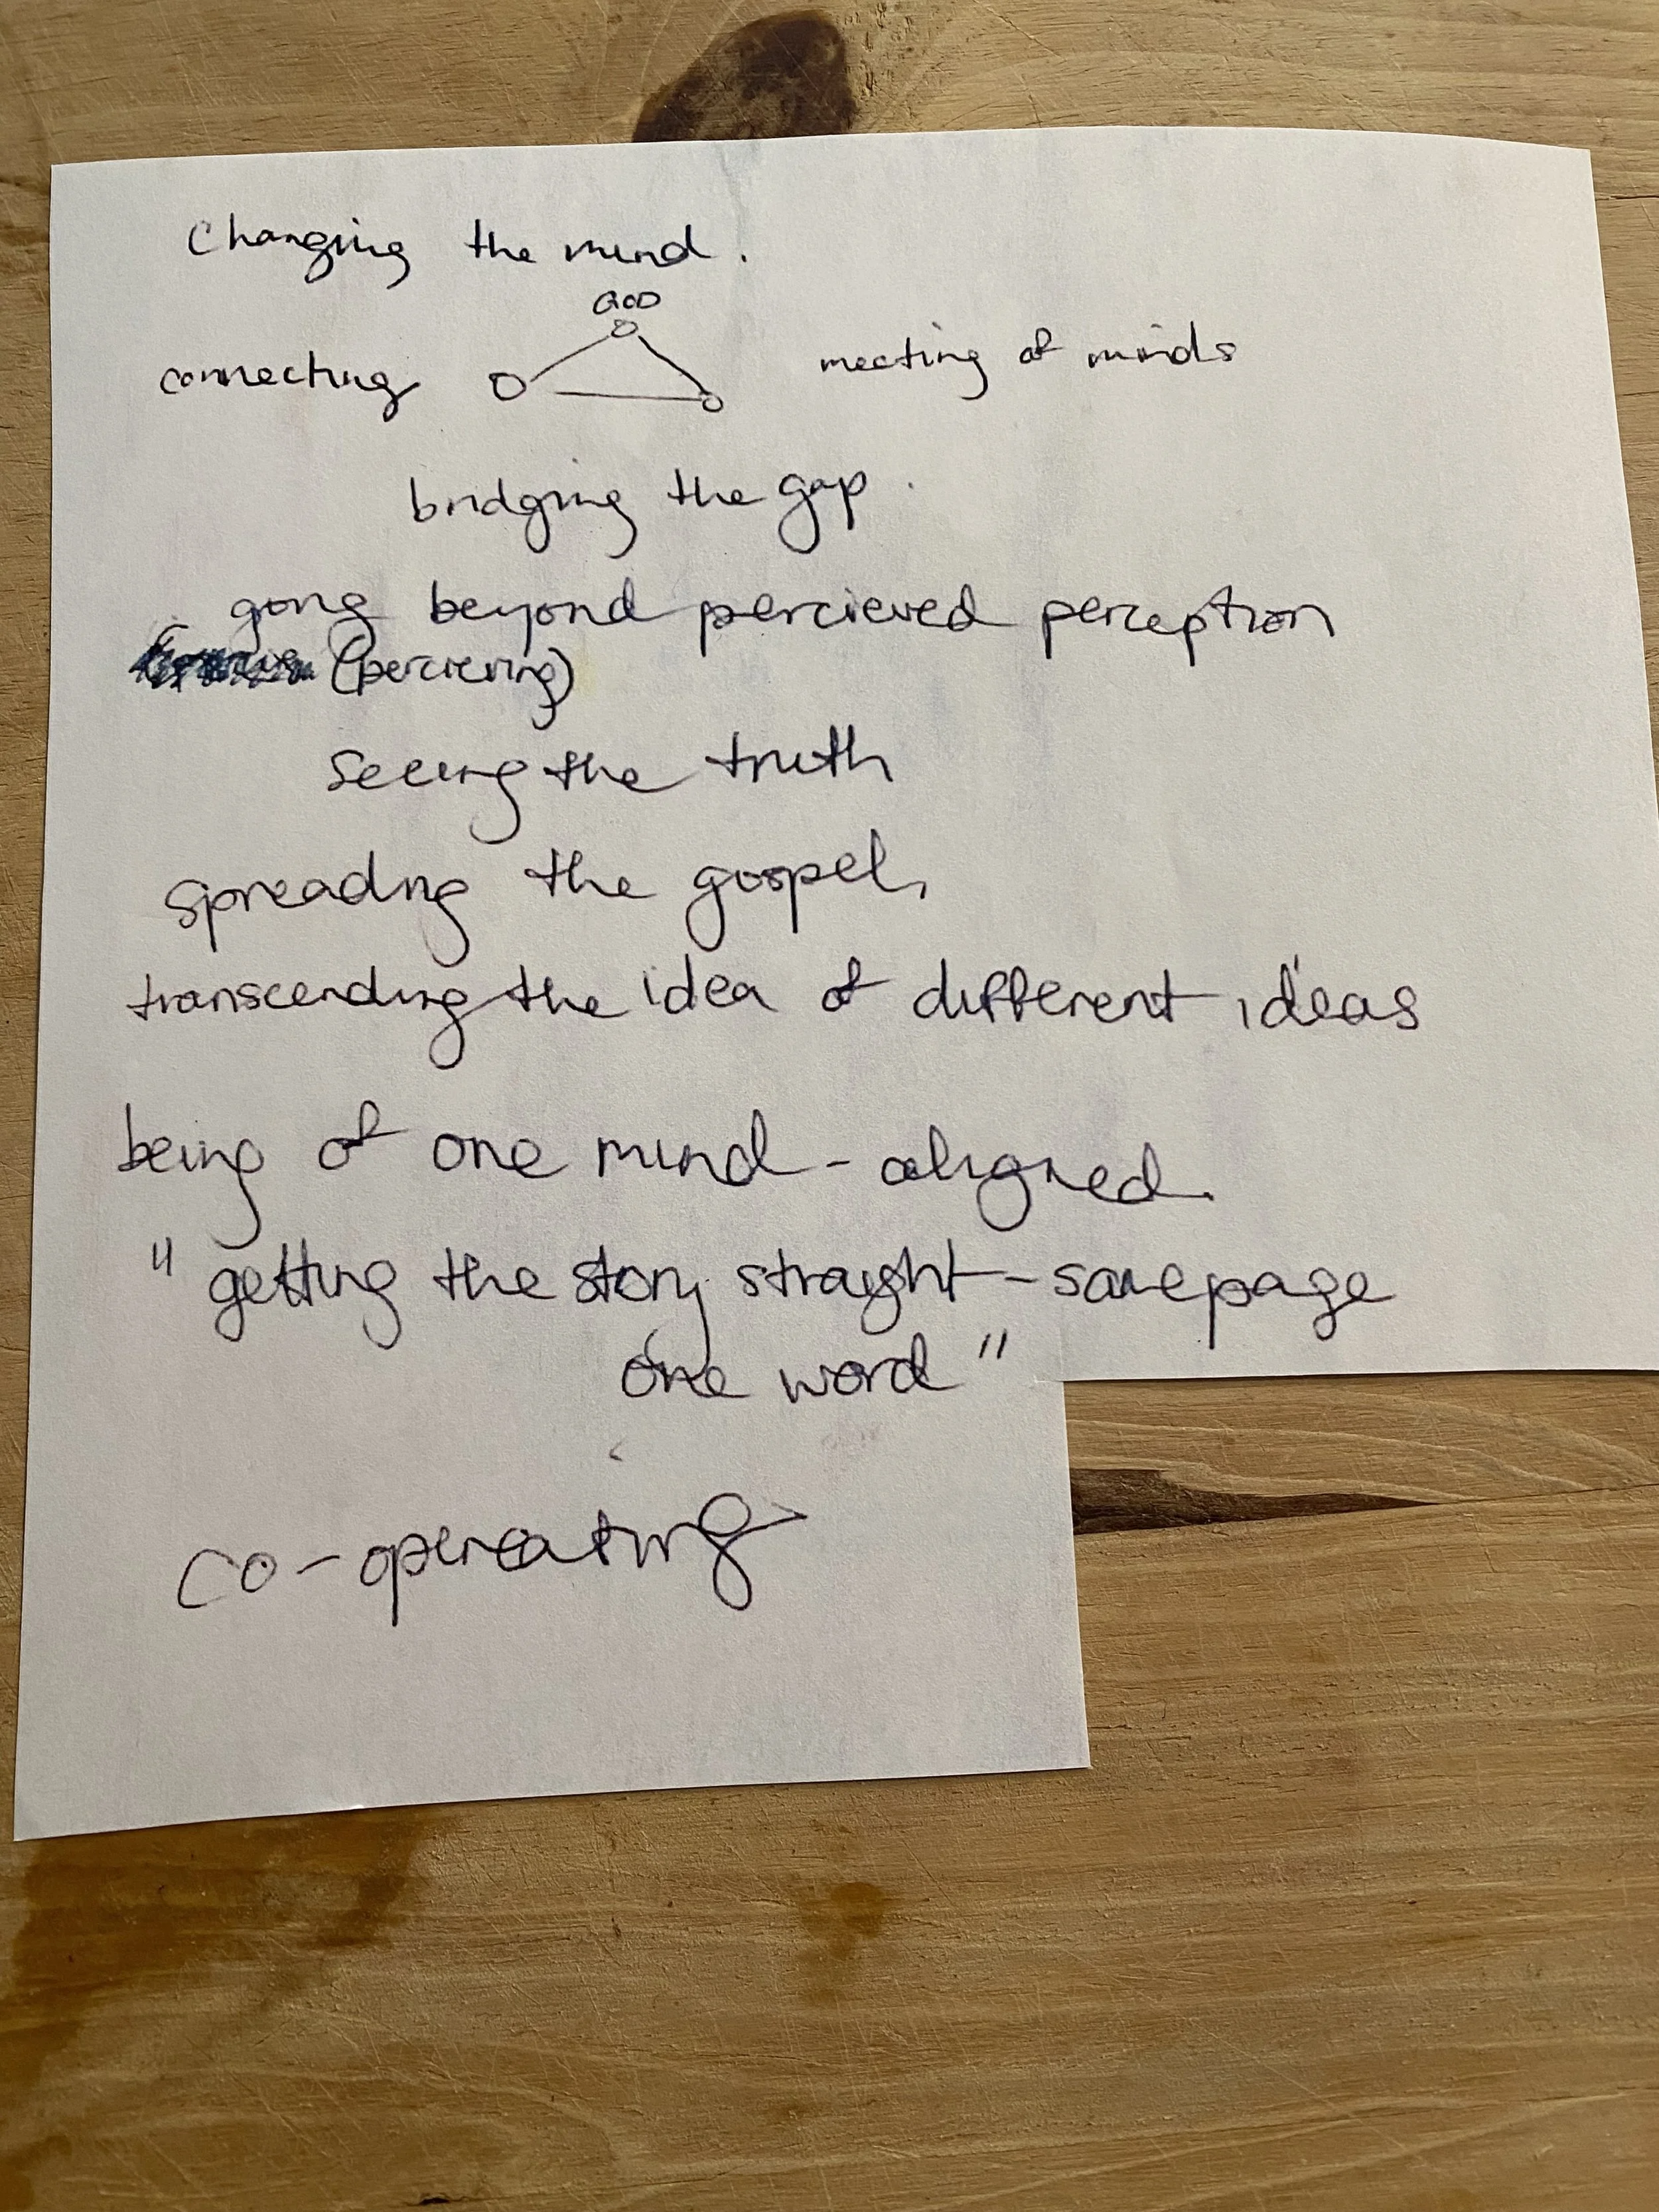 Changing the mind.
GOD
connecting meeting of minds
bridging the gap.
going beyond percieved perception
(percieving)
seeing the truth
spreading the gospel,
transcending the idea of different ideas
being of one mind - aligned.
" getting the story straight - same page
one word "
co-operating